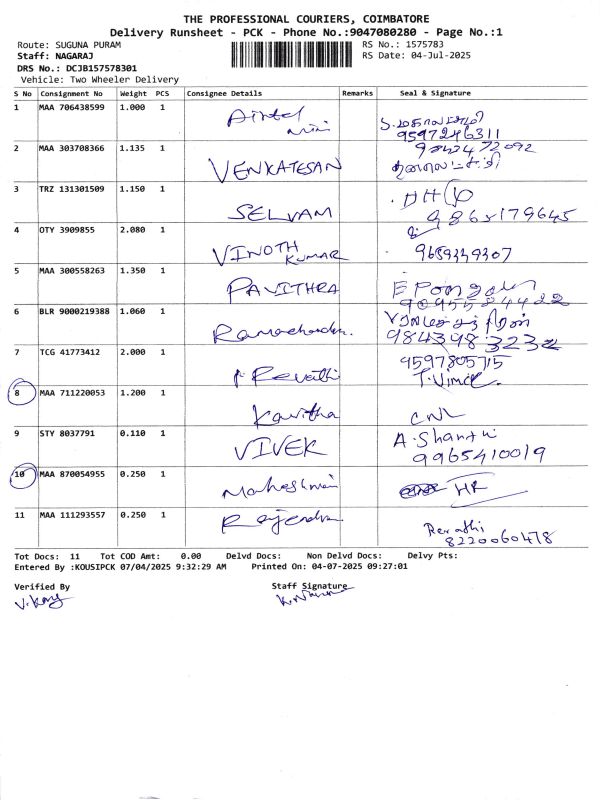 THE PROFESSIONAL COURIERS, COIMBATORE
Delivery Runsheet - PCK - Phone No.:9047080280 - Page No.:1
Route: SUGUNA PURAM RS No.: 1575783
Staff: NAGARAJ RS Date: 04-Jul-2025
DRS No.: DCJB157578301
Vehicle: Two Wheeler Delivery
S No Consignment No Weight PCS Consignee Details Remarks Seal & Signature
1 MAA 706438599 1.000 1 Airtel
9597246311
2 MAA 303708366 1.135 1 VENKATESAN
3 TRZ 131301509 1.150 1 SELVAM
4 OTY 3909855 2.080 1 VINOTH KUMAR 9659349307
5 MAA 300558263 1.350 1 PAVITHRA
9095584422
6 BLR 9000219388 1.060 1 Ramachandran
9843983232
7 TCG 41773412 2.000 1 Revathi 9597805715
8 MAA 711220053 1.200 1 Kavitha
9 STY 8037791 0.110 1 VIVEK A.Shanthi
9965410019
10 MAA 870054955 0.250 1 HR
11 MAA 111293557 0.250 1 Rajendra Revathi
8220060478
Tot Docs: 11 Tot COD Amt: 0.00 Delvd Docs: Non Delvd Docs: Delvy Pts:
Entered By :KOUSIPCK 07/04/2025 9:32:29 AM Printed On: 04-07-2025 09:27:01
Verified By Staff Signature